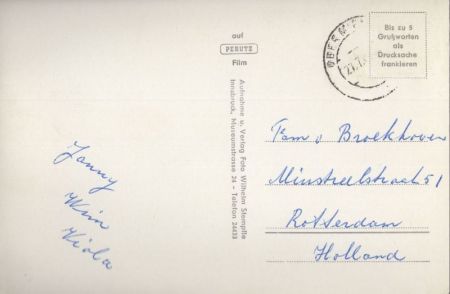 auf
PERUTZ
Film
Aufnahme u. Verlag Foto Wilhelm Stempfle
Innsbruck, Museumstrasse 24 - Telefon 24433
Bis zu 5
Grußworten
als
Drucksache
frankieren
Fam v Broekhoven
Minstreelstraat 51
Rotterdam
Holland
Janny
Wim
Viola